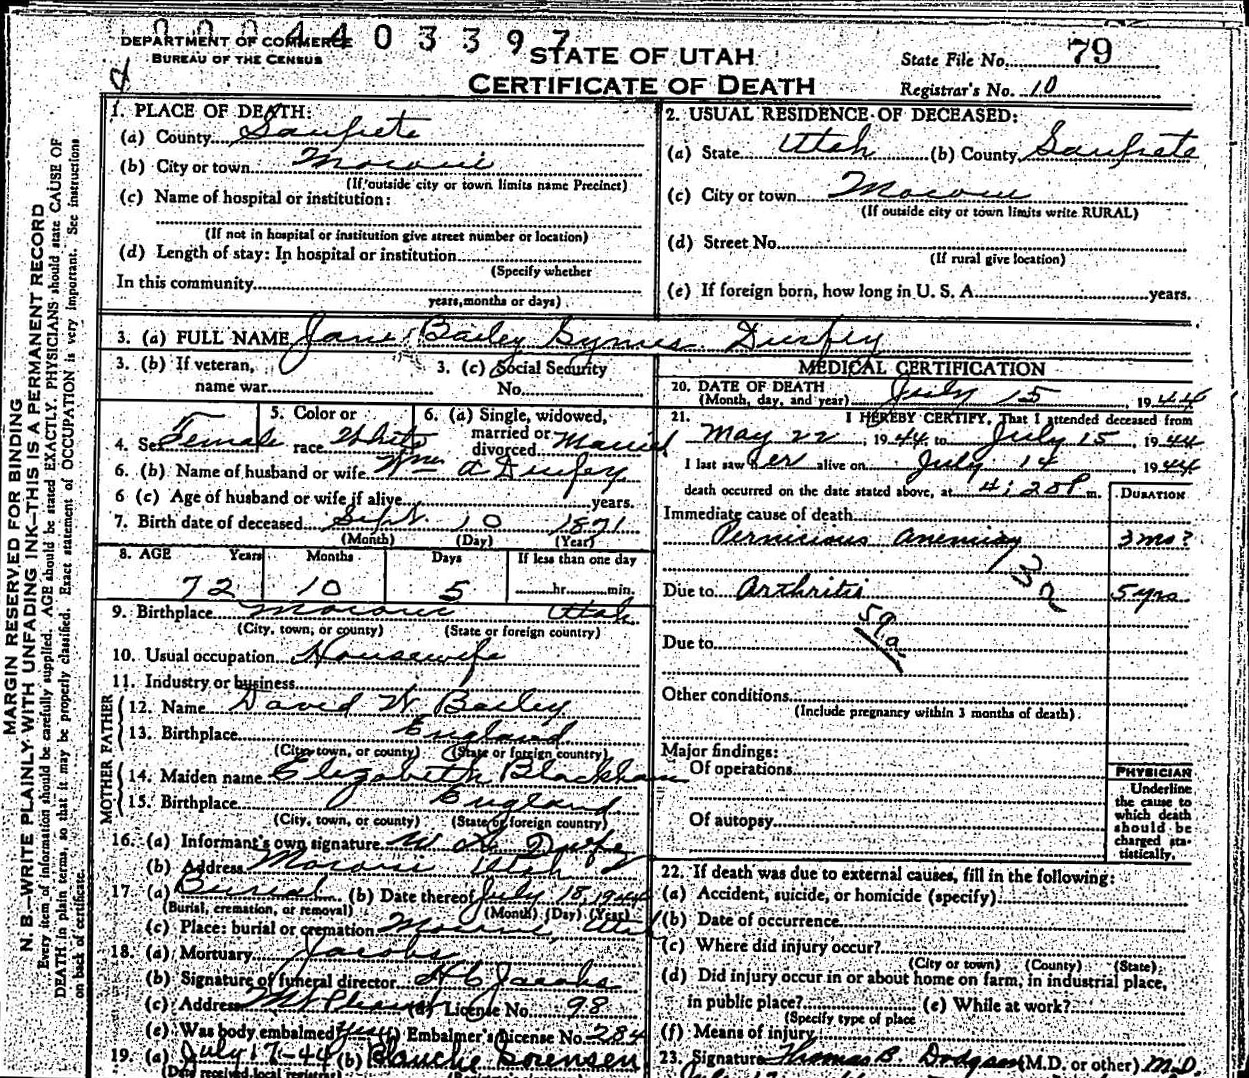 0004403397
DEPARTMENT OF COMMERCE
BUREAU OF THE CENSUS
STATE OF UTAH
CERTIFICATE OF DEATH
State File No. 79
Registrar's No. 10
1. PLACE OF DEATH:
(a) County Sanpete
(b) City or town Moroni
(If outside city or town limits name Precinct)
(c) Name of hospital or institution:
(If not in hospital or institution give street number or location)
(d) Length of stay: In hospital or institution
(Specify whether
In this community
years, months or days)
2. USUAL RESIDENCE OF DECEASED:
(a) State Utah (b) County Sanpete
(c) City or town Moroni
(If outside city or town limits write RURAL)
(d) Street No.
(If rural give location)
(e) If foreign born, how long in U. S. A. years.
3. (a) FULL NAME Jane Bailey Durfey
3. (b) If veteran,
name war
3. (c) Social Security
No.
4. Sex Female
5. Color or
race White
6. (a) Single, widowed,
married or
divorced Married
6. (b) Name of husband or wife Wm a Durfey
6 (c) Age of husband or wife if alive years.
7. Birth date of deceased Sept. 10 1871
(Month) (Day) (Year)
8. AGE Years Months Days If less than one day
72 10 5 hr. min.
9. Birthplace Moroni Utah
(City, town, or county) (State or foreign country)
10. Usual occupation Housewife
11. Industry or business
FATHER
12. Name David W Bailey
13. Birthplace England
(City, town, or county) (State or foreign country)
MOTHER
14. Maiden name Elizabeth Blackham
15. Birthplace England
(City, town, or county) (State or foreign country)
16. (a) Informant's own signature W Durfey
(b) Address Moroni Utah
17. (a) Burial (b) Date thereof July 18, 1944
(Burial, cremation, or removal) (Month) (Day) (Year)
(c) Place: burial or cremation Moroni, Utah
18. (a) Mortuary Jacobs
(b) Signature of funeral director Jacobs
(c) Address Mt Pleasant (d) License No. 98
(e) Was body embalmed yes (f) Embalmer's License No. 284
19. (a) July 17-44 (b) Blanche Sorensen
(Date received local registrar)
MEDICAL CERTIFICATION
20. DATE OF DEATH
(Month, day, and year) July 15, 1944
21. I HEREBY CERTIFY, That I attended deceased from
May 22, 1944 to July 15, 1944
I last saw her alive on July 14, 1944
death occurred on the date stated above, at 4:20 P. m.
DURATION
Immediate cause of death
Pernicious anemia 3 mo?
Due to Arthritis 5 yrs
59a
Due to
Other conditions
(Include pregnancy within 3 months of death)
Major findings:
Of operations
Of autopsy
PHYSICIAN
Underline
the cause to
which death
should be
charged sta-
tistically.
22. If death was due to external causes, fill in the following:
(a) Accident, suicide, or homicide (specify)
(b) Date of occurrence
(c) Where did injury occur?
(City or town) (County) (State)
(d) Did injury occur in or about home on farm, in industrial place,
in public place? (e) While at work?
(Specify type of place
(f) Means of injury
23. Signature Thomas B. Dodgson (M.D. or other) M.D.
MARGIN RESERVED FOR BINDING
N. B.—WRITE PLAINLY WITH UNFADING INK—THIS IS A PERMANENT RECORD
Every item of information should be carefully supplied. AGE should be stated EXACTLY. PHYSICIANS should state CAUSE OF
DEATH in plain terms, so that it may be properly classified. Exact statement of OCCUPATION is very important. See instructions
on back of certificate.